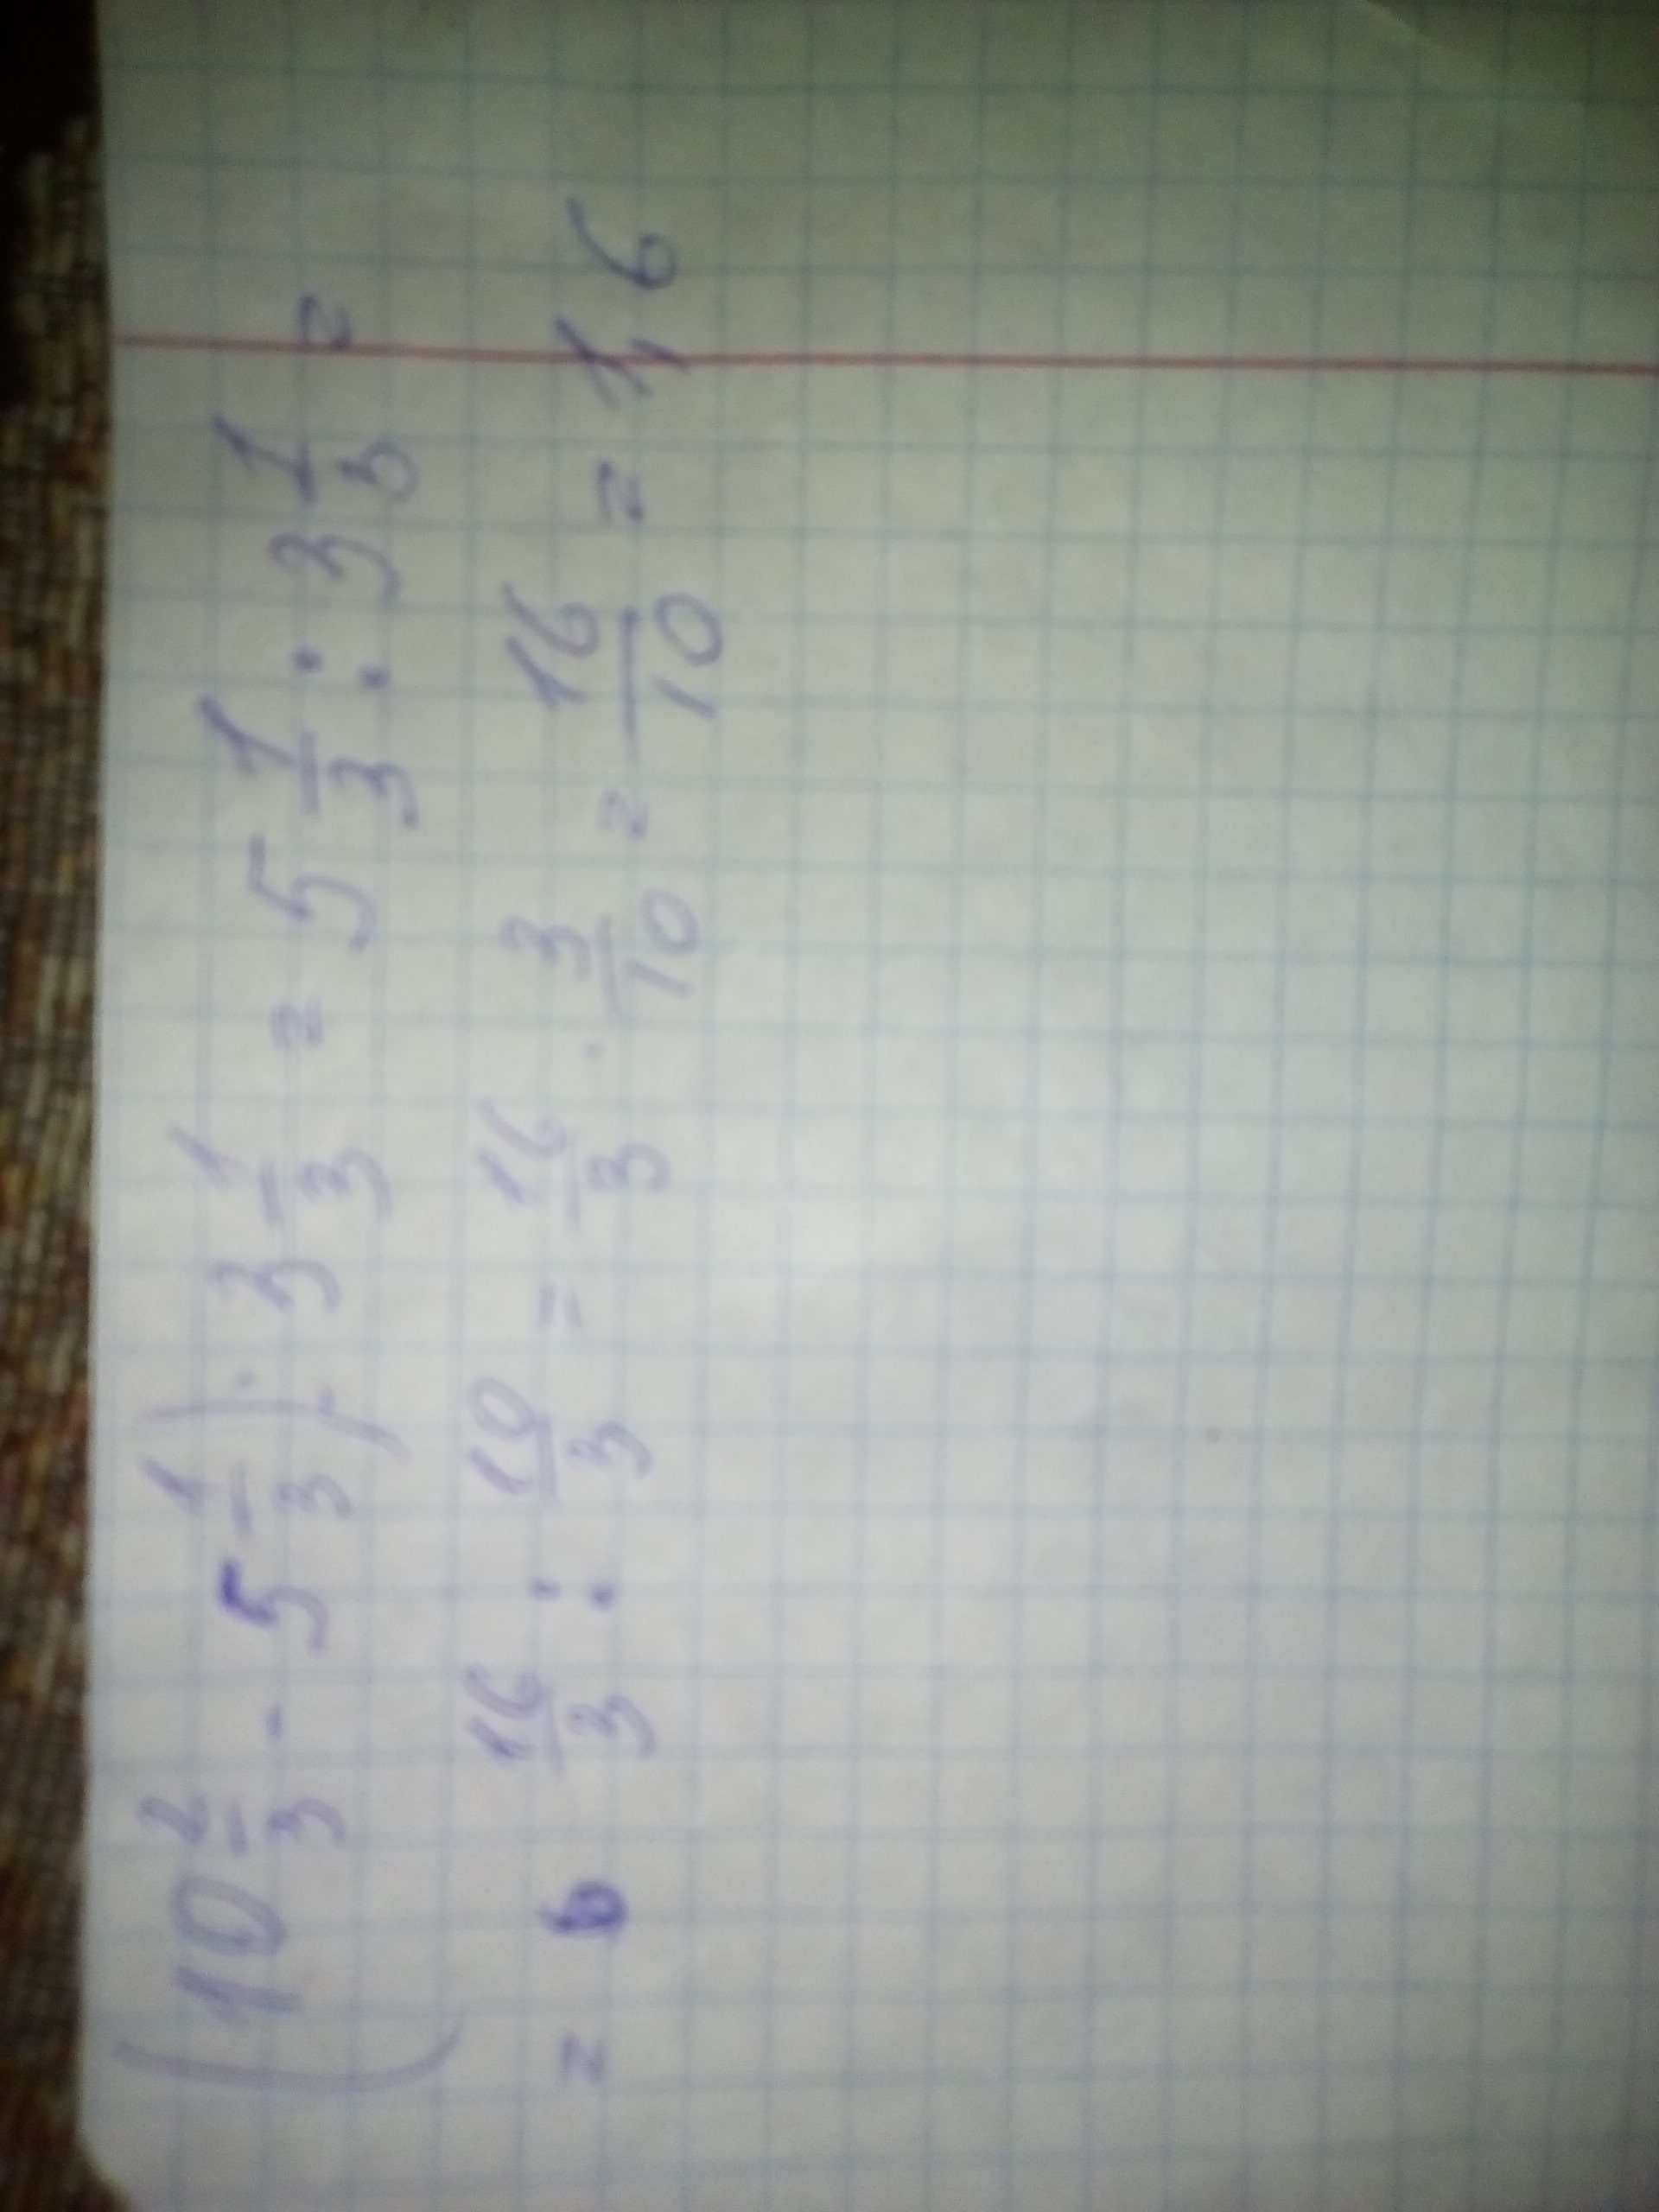 (10 2/3 - 5 1/3) : 3 1/3 = 5 1/3 : 3 1/3 =
= 16/3 : 10/3 = 16/3 · 3/10 = 16/10 = 1,6